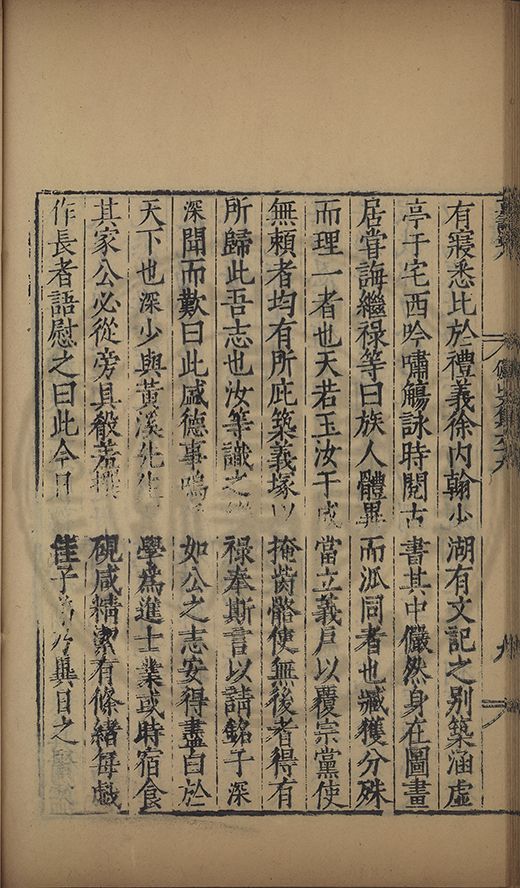 有寢悉比於禮義徐內翰少湖有文記之別築涵虛
亭于宅西吟嘯觴詠時閱古書其中儼然身在圖畫
居嘗誨繼祿等曰族人體異而派同者也臧獲分殊
而理一者也天若玉汝于成當立義戶以覆宗黨使
無賴者均有所庇築義塚以掩茵骼使無後者得有
所歸此吾志也汝等識之祿奉斯言以請銘子深
深聞而歎曰此盛德事嗚如公之志安得盡白於
天下也深少與黃溪先生學為進士業或時宿食
其家公必從旁具殽羞撰硯咸精潔有條緒每戲
作長者語慰之曰此今日佳子異日之